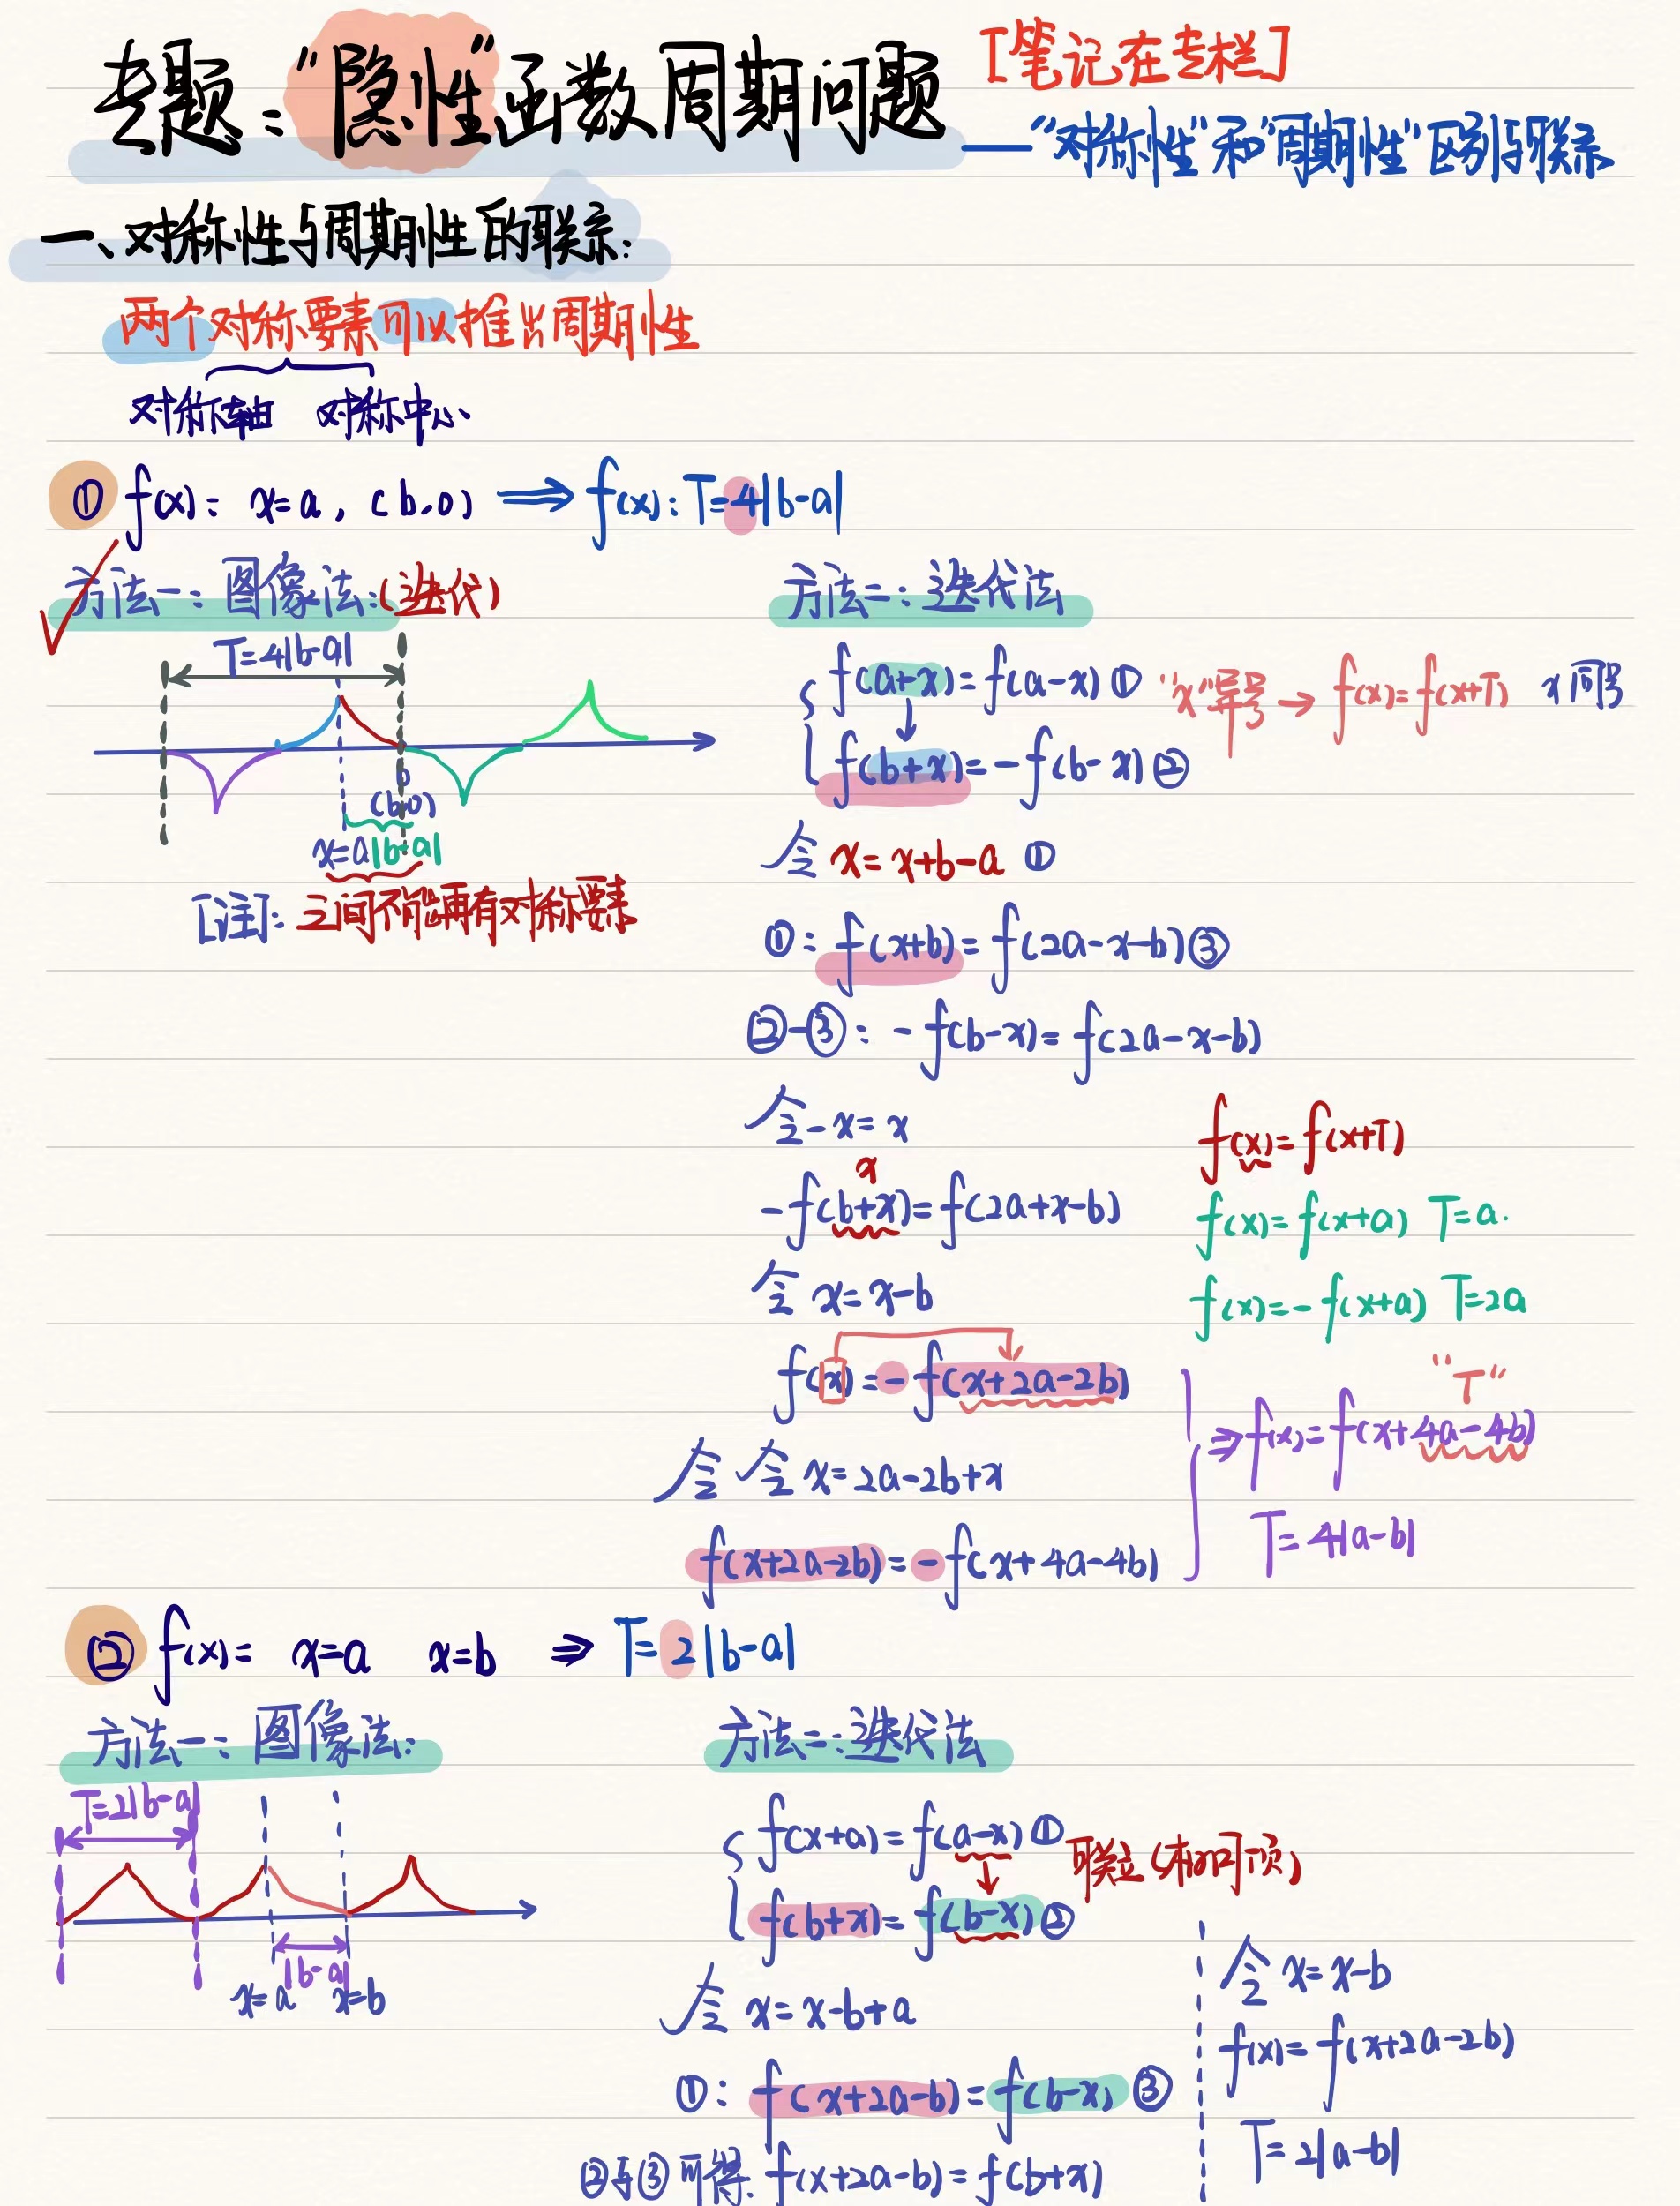 专题:“隐性”函数周期问题 [笔记在专栏]
——“对称性”和“周期性”区别与联系
一、对称性与周期性的联系:
两个对称要素可以推出周期性
对称轴 对称中心
① f(x): x=a, (b,0) ⟹ f(x): T=4|b-a|
方法一: 图像法:(迭代)
T=4|b-a|
b
(b,0)
x=a |b-a|
[注]: 之间不能再有对称要素
方法二: 迭代法
f(a+x)=f(a-x) ① “x”异号 → f(x)=f(x+T) x同号
f(b+x)=-f(b-x) ②
令 x=x+b-a ①
①: f(x+b)=f(2a-x-b) ③
②-③: -f(b-x)=f(2a-x-b)
令-x=x
x
-f(b+x)=f(2a+x-b)
令 x=x-b
f(x)=-f(x+2a-2b)
令 令 x=2a-2b+x
f(x+2a-2b)=-f(x+4a-4b)
f(x)=f(x+T)
f(x)=f(x+a) T=a.
f(x)=-f(x+a) T=2a
“T”
⇒f(x)=f(x+4a-4b)
T=4|a-b|
② f(x)= x=a x=b ⇒ T=2|b-a|
方法一: 图像法:
T=2|b-a|
|b-a|
x=a x=b
方法二: 迭代法
f(x+a)=f(a-x) ① 联立(相同项)
f(b+x)=f(b-x) ②
令 x=x-b+a
①: f(x+2a-b)=f(b-x) ③
②与③可得: f(x+2a-b)=f(b+x)
令 x=x-b
f(x)=f(x+2a-2b)
T=2|a-b|